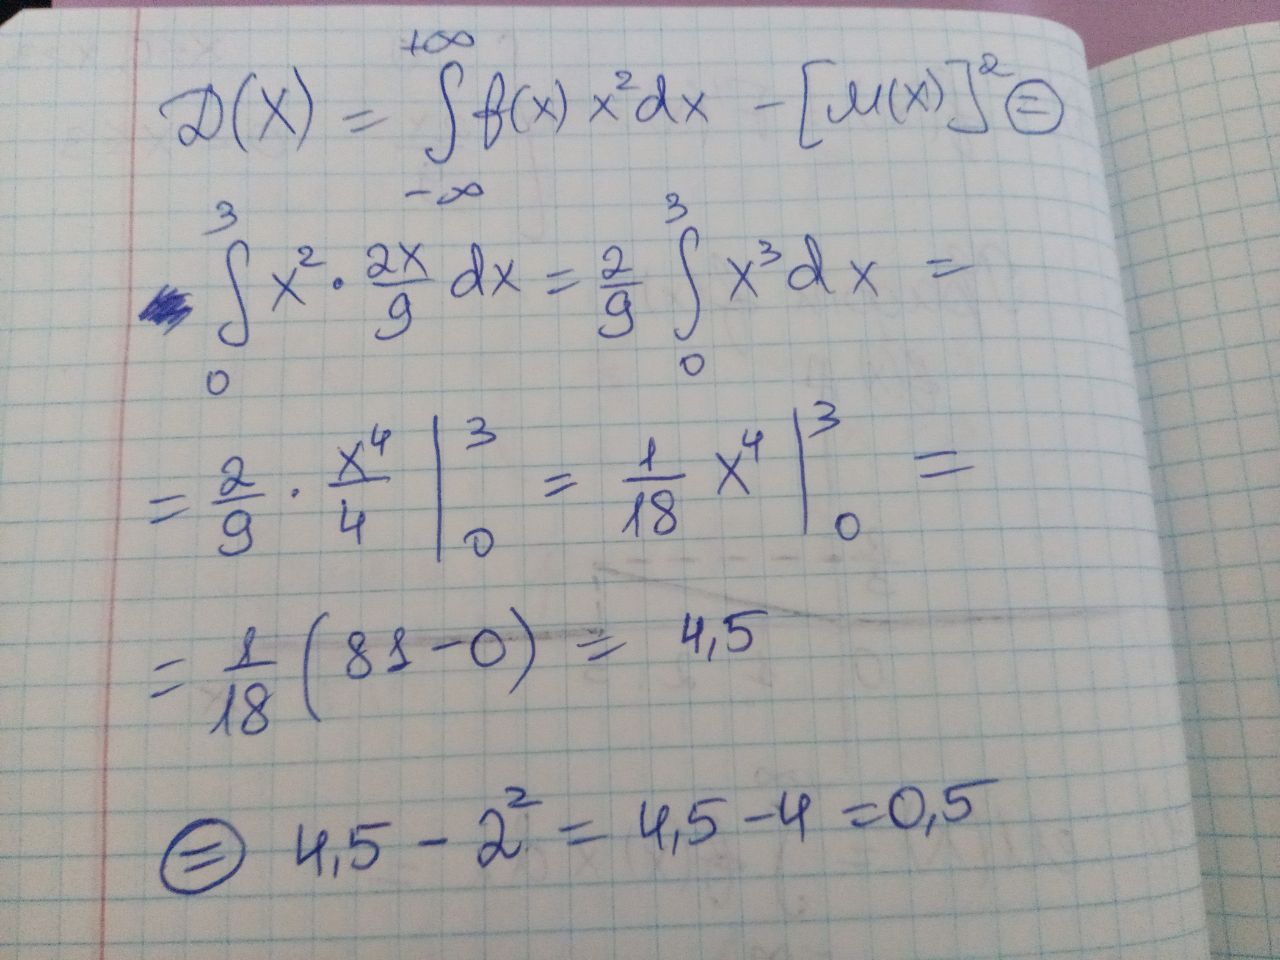 D(X) = ∫_{-∞}^{+∞} f(x) x² dx - [M(X)]² ⊜
∫_0^3 x² · 2x/9 dx = 2/9 ∫_0^3 x³ dx =
= 2/9 · x⁴/4 |_0^3 = 1/18 x⁴ |_0^3 =
= 1/18 (81 - 0) = 4,5
⊜ 4,5 - 2² = 4,5 - 4 = 0,5